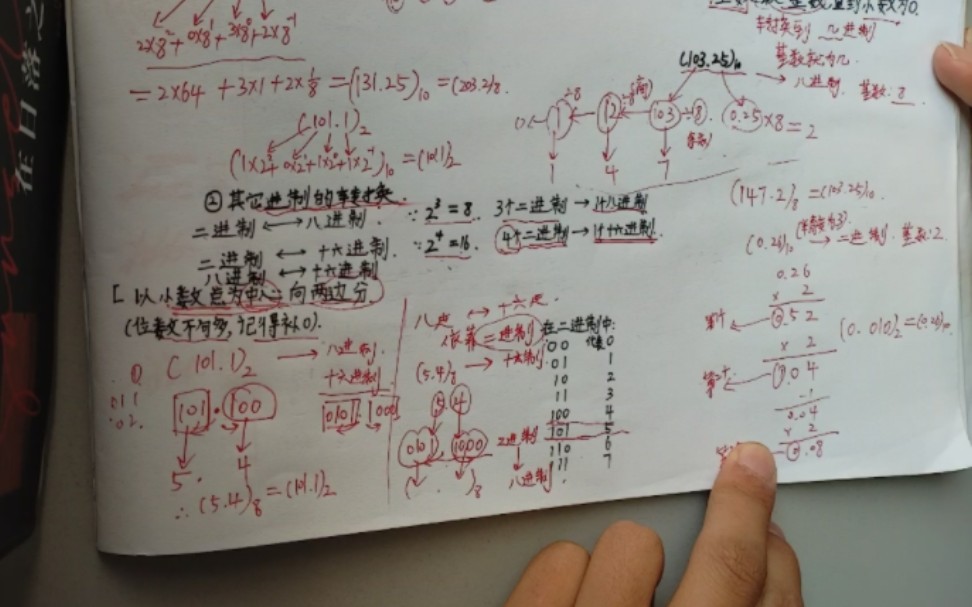 2×8²+0×8¹+3×8⁰+2×8⁻¹
=2×64+3×1+2×1/8=(131.25)₁₀=(203.2)₈
(101.1)₂
(1×2²+0×2¹+1×2⁰+1×2⁻¹)₁₀=(101.1)₂
②其它进制的转换
二进制⟷八进制. ∵2³=8 3个二进制→1个八进制
二进制⟷十六进制. ∵2⁴=16. 4个二进制→1个十六进制.
八进制⟷十六进制
[以小数点为中心向两边分
(位数不够多,记得补0).
(101.1)₂ ⟶ 八进制
十六进制
101.100 0101.1000
5. 4
∴(5.4)₈=(101.1)₂
八进⟷十六进.
依靠二进制
(5.4)₈→十六进制
5 4
0101 1000
( )₈
在二进制中:
00 代表0
01 1
10 2
11 3
100 4
101 5
110 6
111 7
二进制
八进制.
基数直到小数为0.
转换到 几进制
基数就为几.
(103.25)₁₀ → 八进制. 基数:8
0 1 ÷8 12 ÷8 103 ÷8. 0.25×8=2
1 4 7
(147.2)₈=(103.25)₁₀
(0.26)₁₀ → 二进制. 基数:2
0.26
× 2
0.52
× 2
1.04
-1
0.04
× 2
0.08
(0.010)₂=(0.26)₁₀